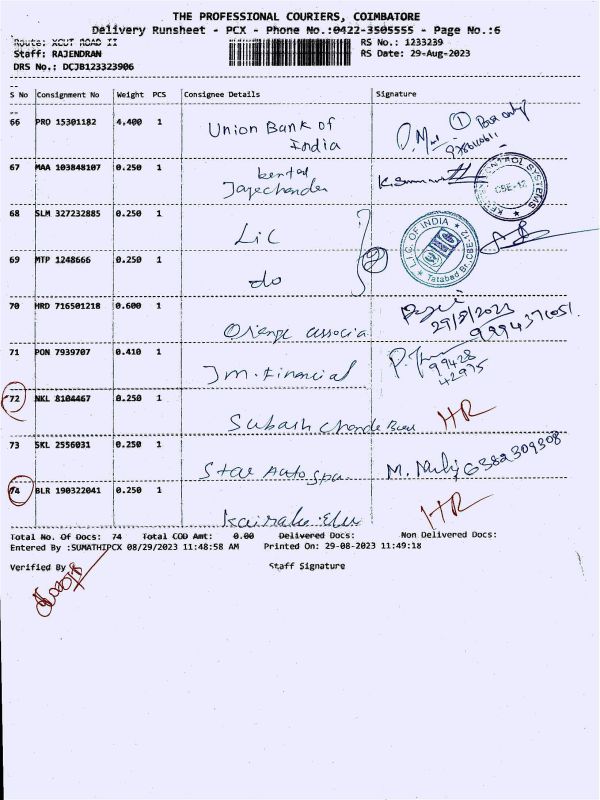 THE PROFESSIONAL COURIERS, COIMBATORE
Delivery Runsheet - PCX - Phone No.:0422-3505555 - Page No.:6
Route: XCUT ROAD II
RS No.: 1233239
Staff: RAJENDRAN
RS Date: 29-Aug-2023
DRS No.: DCJB123323906
S No Consignment No Weight PCS Consignee Details Signature
66 PRO 15301182 4.400 1 Union Bank of India
67 MAA 103848107 0.250 1
CBE-12
68 SLM 327232885 0.250 1 Lic
L.I.C. OF INDIA
Tatabad Br. CBE-12
69 MTP 1248666 0.250 1 do
2
70 HRD 716501218 0.600 1 Orange associa
29/8/2023
71 PON 7939707 0.410 1 Jm. Financial
99428
42975
72 NKL 8104467 0.250 1 Subash Chande Bose HR
73 SKL 2556031 0.250 1 Star Auto Spa 6382309308
74 BLR 190322041 0.250 1 HR
Total No. Of Docs: 74 Total COD Amt: 0.00 Delivered Docs: Non Delivered Docs:
Entered By :SUMATHIPCX 08/29/2023 11:48:58 AM Printed On: 29-08-2023 11:49:18
Verified By Staff Signature